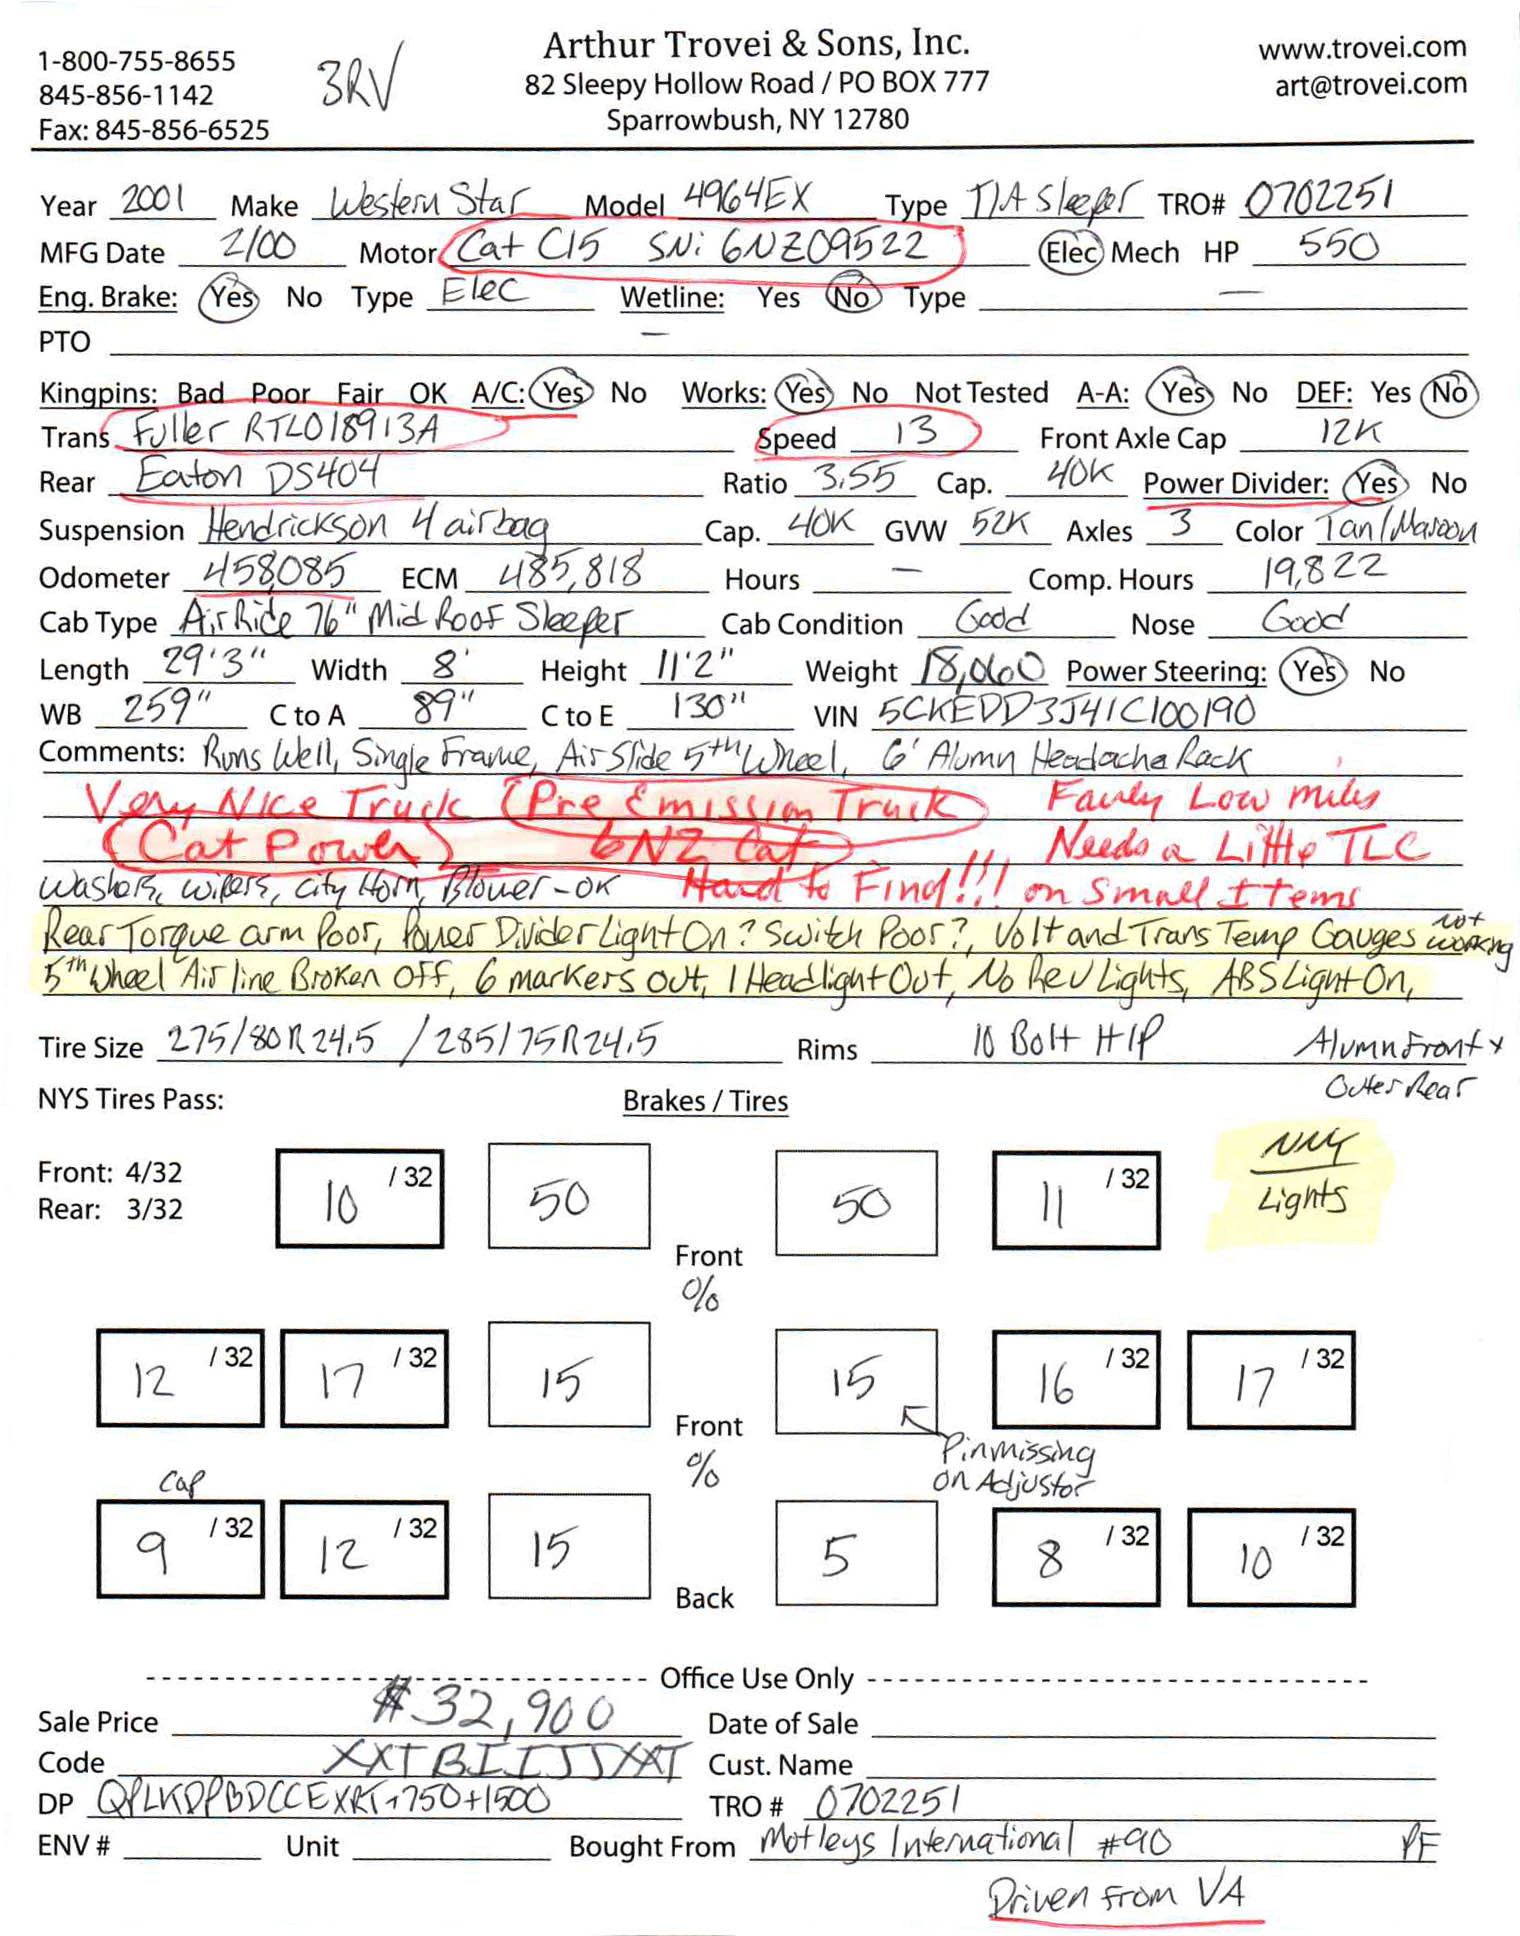 1-800-755-8655
845-856-1142
Fax: 845-856-6525
3RV
Arthur Trovei & Sons, Inc.
82 Sleepy Hollow Road / PO BOX 777
Sparrowbush, NY 12780
www.trovei.com
art@trovei.com
Year 2001 Make Western Star Model 4964EX Type T/A Sleeper TRO# 0702251
MFG Date 2/00 Motor Cat C15 SN: 6NZ09522 Elec Mech HP 550
Eng. Brake: Yes No Type Elec Wetline: Yes No Type —
PTO —
Kingpins: Bad Poor Fair OK A/C: Yes No Works: Yes No Not Tested A-A: Yes No DEF: Yes No
Trans Fuller RTLO18913A Speed 13 Front Axle Cap 12K
Rear Eaton DS404 Ratio 3.55 Cap. 40K Power Divider: Yes No
Suspension Hendrickson 4 airbag Cap. 40K GVW 52K Axles 3 Color Tan/Maroon
Odometer 458,085 ECM 485,818 Hours — Comp. Hours 19,822
Cab Type Air Ride 76" Mid Roof Sleeper Cab Condition Good Nose Good
Length 29'3" Width 8' Height 11'2" Weight 18,060 Power Steering: Yes No
WB 259" C to A 89" C to E 130" VIN 5CKEDD3J41C100190
Comments: Runs Well, Single Frame, Air Slide 5th Wheel, 6' Alumn Headache Rack
Very Nice Truck (Pre Emission Truck) Fairly Low miles
(Cat Power) 6NZ Cat Needs a Little TLC
Washers, wipers, city Horn, Blower-OK Hard to Find!!! on Small Items
Rear Torque arm Poor, Power Divider Light On? Switch Poor?, Volt and Trans Temp Gauges not working
5th Wheel Air line Broken Off, 6 markers out, 1 Headlight Out, No Rev Lights, ABS Light On,
Tire Size 275/80R24.5 / 285/75R24.5 Rims 10 Bolt H/P Alumn Front +
Outer Rear
NYS Tires Pass: Brakes / Tires
Front: 4/32
Rear: 3/32
10 /32 50 50 11 /32
NMY
Lights
Front
%
12 /32 17 /32 15 15 16 /32 17 /32
Front
%
Pin missing
on Adjustor
Cap
9 /32 12 /32 15 5 8 /32 10 /32
Back
Office Use Only
Sale Price $32,900 Date of Sale
Code XXTBIIJJXAT Cust. Name
DP QPLKDPBDCCEXRT+750+1500 TRO # 0702251
ENV # Unit Bought From Motleys International #90 PF
Driven from VA